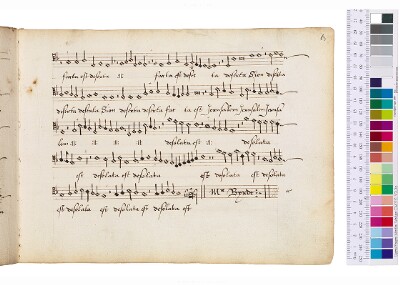 facta est desolata ii facta est deser ta deserta Sion deserta
deserta deserta Sion deserta deserta fac ta est Jerusalem Jerusalem Jerusa
lem ii ii ii desolata est ii desolata
est desolata est desolata est desolata est desolata
est desolata est desolata est desolata est Mr Byrde